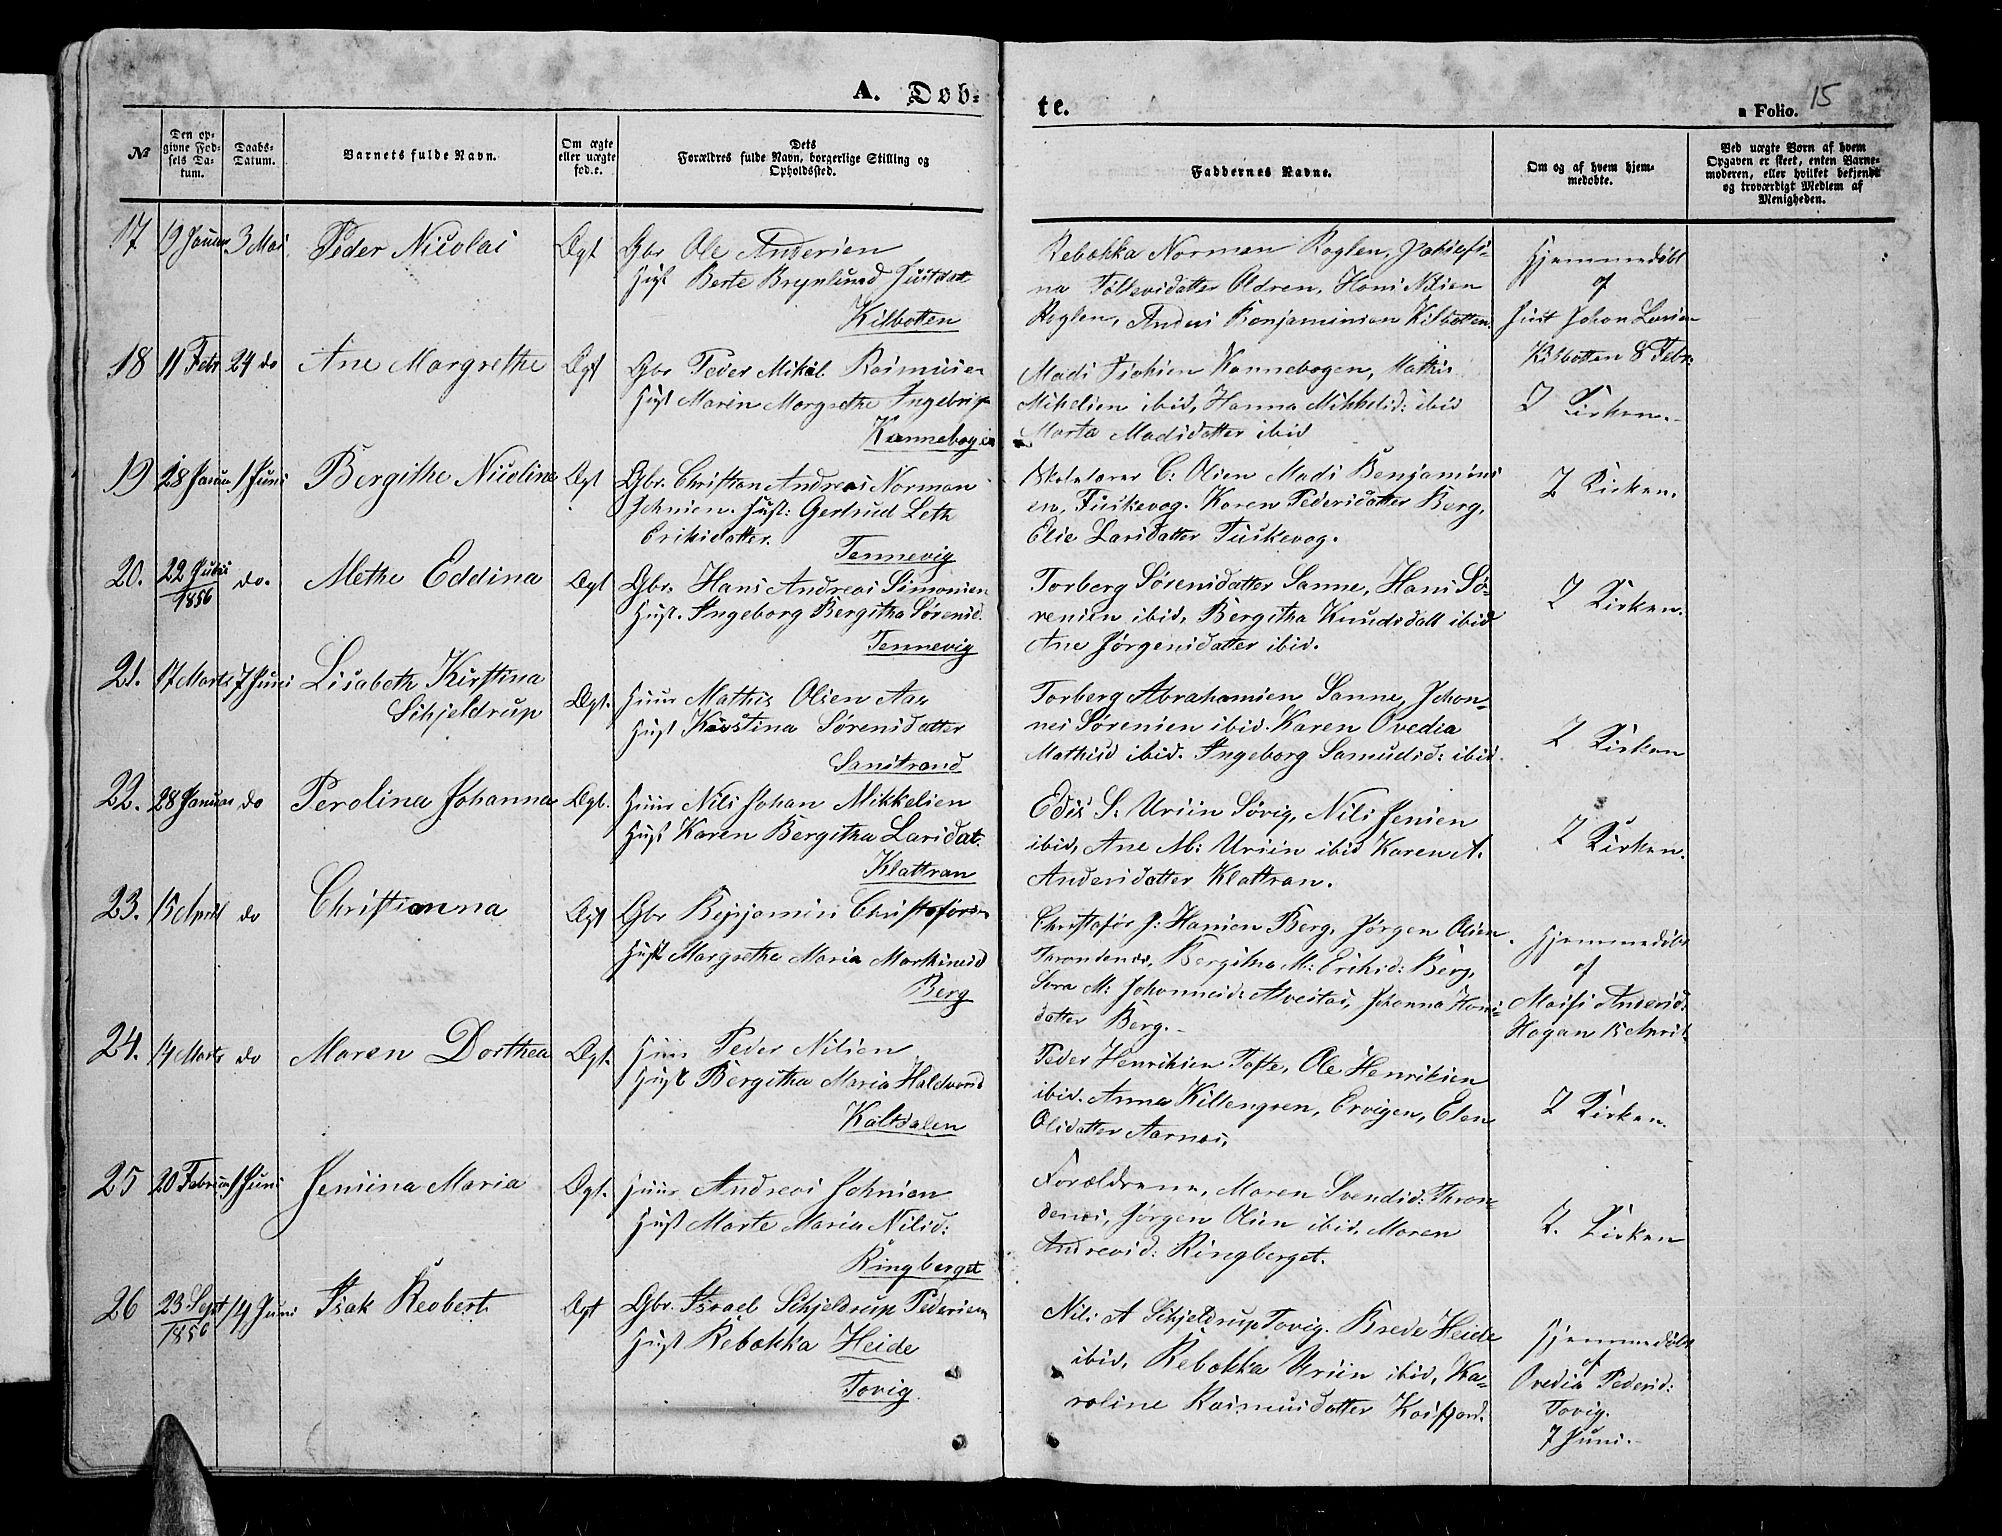 A. Døb-
te.
a Folio. 15
№
Den op-
givne Fød-
sels Da-
tum.
Daabs-
Datum.
Barnets fulde Navn.
Om ægte
eller uægte
fød.e.
Dets
Forældres fulde Navn, borgerlige Stilling og
Opholdssted.
Faddernes Navne.
Om og af hvem hjem-
medøbte.
Ved uægte Børn af hvem
Opgaven er skeet, enten Barne-
moderen, eller hvilket bekjendt
og troværdigt Medlem af
Menigheden.
17 3 Mai Peder Nicolai Ægt Gbr Ole Andersen
Hust Berte Brynlund
Kilbotten
Rebekka Norman Roglen,
Oldren, Hans Nilsen
Roglen, Anders Benjaminsen Kilbotten.
Hjemmedøbt
af
Just Johan Larsen
Kilbotten 8 Febr:
18 11 Febr 24 do Ane Margrethe Ægt Gbr Peder Mikal Rasmusen
Hust Maren Margrethe
Kannebogen
Mads Kannebogen, Mathis
Mikelsen ibid, Hanna Mikkelsd: ibid
Marta Madsdatter ibid
I Kirken.
19 28 Januar 1 Juni Bergithe Nicoline Ægt Gbr. Christian Andreas Norman
Johnsen. Hust: Gertrud Leth
Eriksdatter.
Tennevig
Skolelærer C: Olsen Mads Benjamins
en, Fuskevog. Karen Pedersdatter Berg,
Elie Larsdatter Fuskevog.
I Kirken.
20. 22
1856 do. Methe Eddina Ægt Gbr. Hans Andreas Simonsen
Hust. Ingeborg Bergitha Sørensd.
Tennevig
Torberg Sørensdatter Sanne, Hans Sø-
rensen ibid, Bergitha Knudsdatt ibid
Ane Jørgensdatter ibid.
I Kirken.
21. 17 Marts 7 Juni Lisabeth Kirstina
Schjeldrup Ægt. Huus Mathis Olsen
Hust Kirstina Sørensdatter
Sanstrand
Torberg Abrahamsen Sanne, Johan-
nes Sørensen ibid. Karen Ovedia
Mathisd ibid. Ingeborg Samuelsd: ibid.
I Kirken
22. 28 Januar do Perolina Johanna Ægt. Huus Nils Johan Mikkelsen
Hust Karen Bergitha Larsdat.
Klattran
S: Ursin Søvig, Nils Jensen
ibid, Ane M: Ursin ibid Karen A.
Andersdatter Klattran.
I Kirken.
23. 15 April do Christianna Ægt Gbr Benjamin Christofersen
Hust Margrethe Maria Markusd
Berg
Christofer J: Hansen Berg, Jørgen Olsen
Throndenes, Bergitha M: Eriksd: Berg,
Sara M: Johannesd: Alvestad, Johanna Hans-
datter Berg.
Hjemmedøbt
af
Andersd:
Hagan 15 April
24. 14 Marts do Maren Dorthea Ægt. Huus Peder Nilsen
Hust Bergitha Maria Haldvord
Kaltdalen
Peder Henriksen Tofte, Ole Henriksen
ibid. Anna Killengren, Ervigen, Elen
Olsdatter Aarnes.
I Kirken.
25 20 Februar 1 Juni Jensina Maria Ægt. Huus Andreas Johnsen
Hust Marte Maria Nilsd:
Ringberget
Forældrene, Maren Svendsd: Thron-
denes, Jørgen Olsen ibid, Maren
Andreasd: Ringberget.
I Kirken
26 23 Sept
1856 14 Juni Isak Reobert Ægt Gbr. Israel Schjeldrup Pedersen
Hust Rebekka Heide
Tovig
Nils A Schjeldrup Tovig. Brede Heide
ibid, Rebekka Ursin ibid, Ka-
roline Rasmusdatter Kasfjord.
Hjemmedøbt
af
Ovedia Pedersd:
Tovig.
7 Juni.